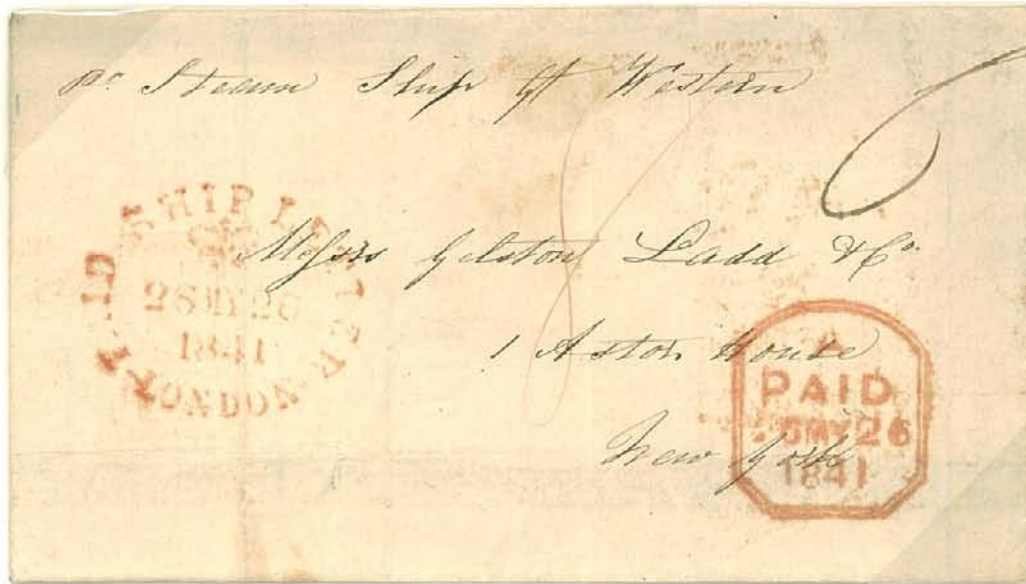 pr. Steam Ship Gt Western
8
6
PAID SHIP LETTER LONDON
26 MY 26
1841
Messrs Gelston Ladd & Co.
1 Astor House
New York
PAID
MY 26
1841